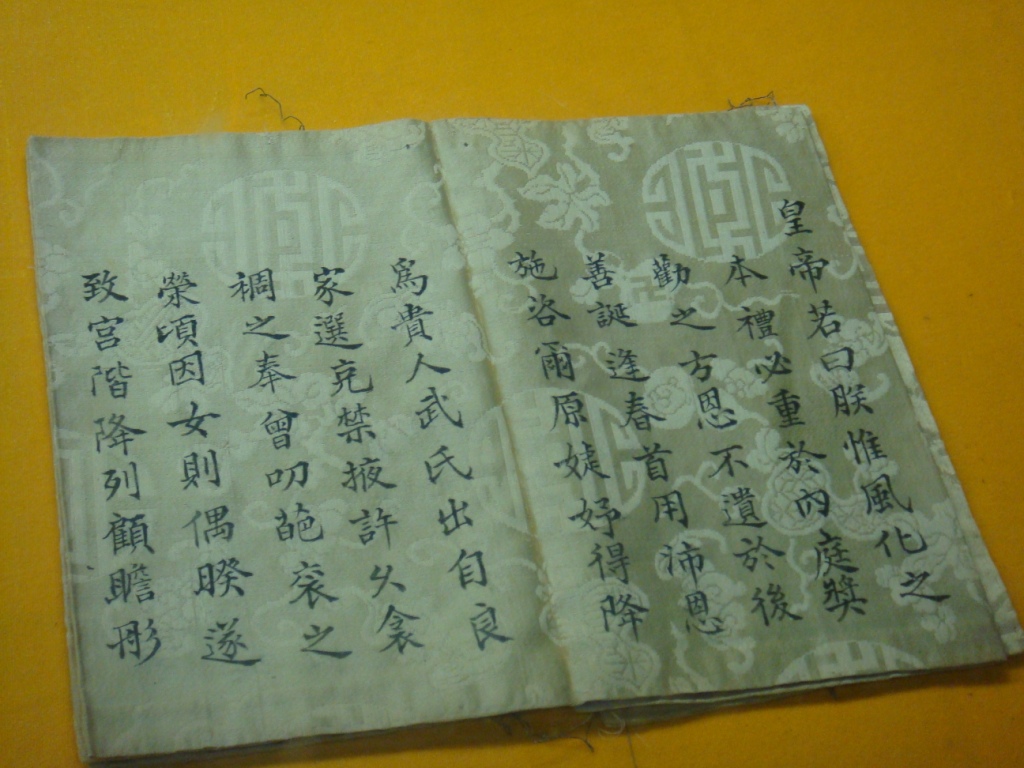 皇帝若曰朕惟風化之
本禮必重於內庭獎
勸之方恩不遺於後
善誕逢春首用沛恩
施咨爾原婕妤得降
為貴人武氏出自良
家選充禁掖許久衾
裯之奉曾叨葩袞之
榮頃因女則偶暌遂
致宮階降列顧瞻彤